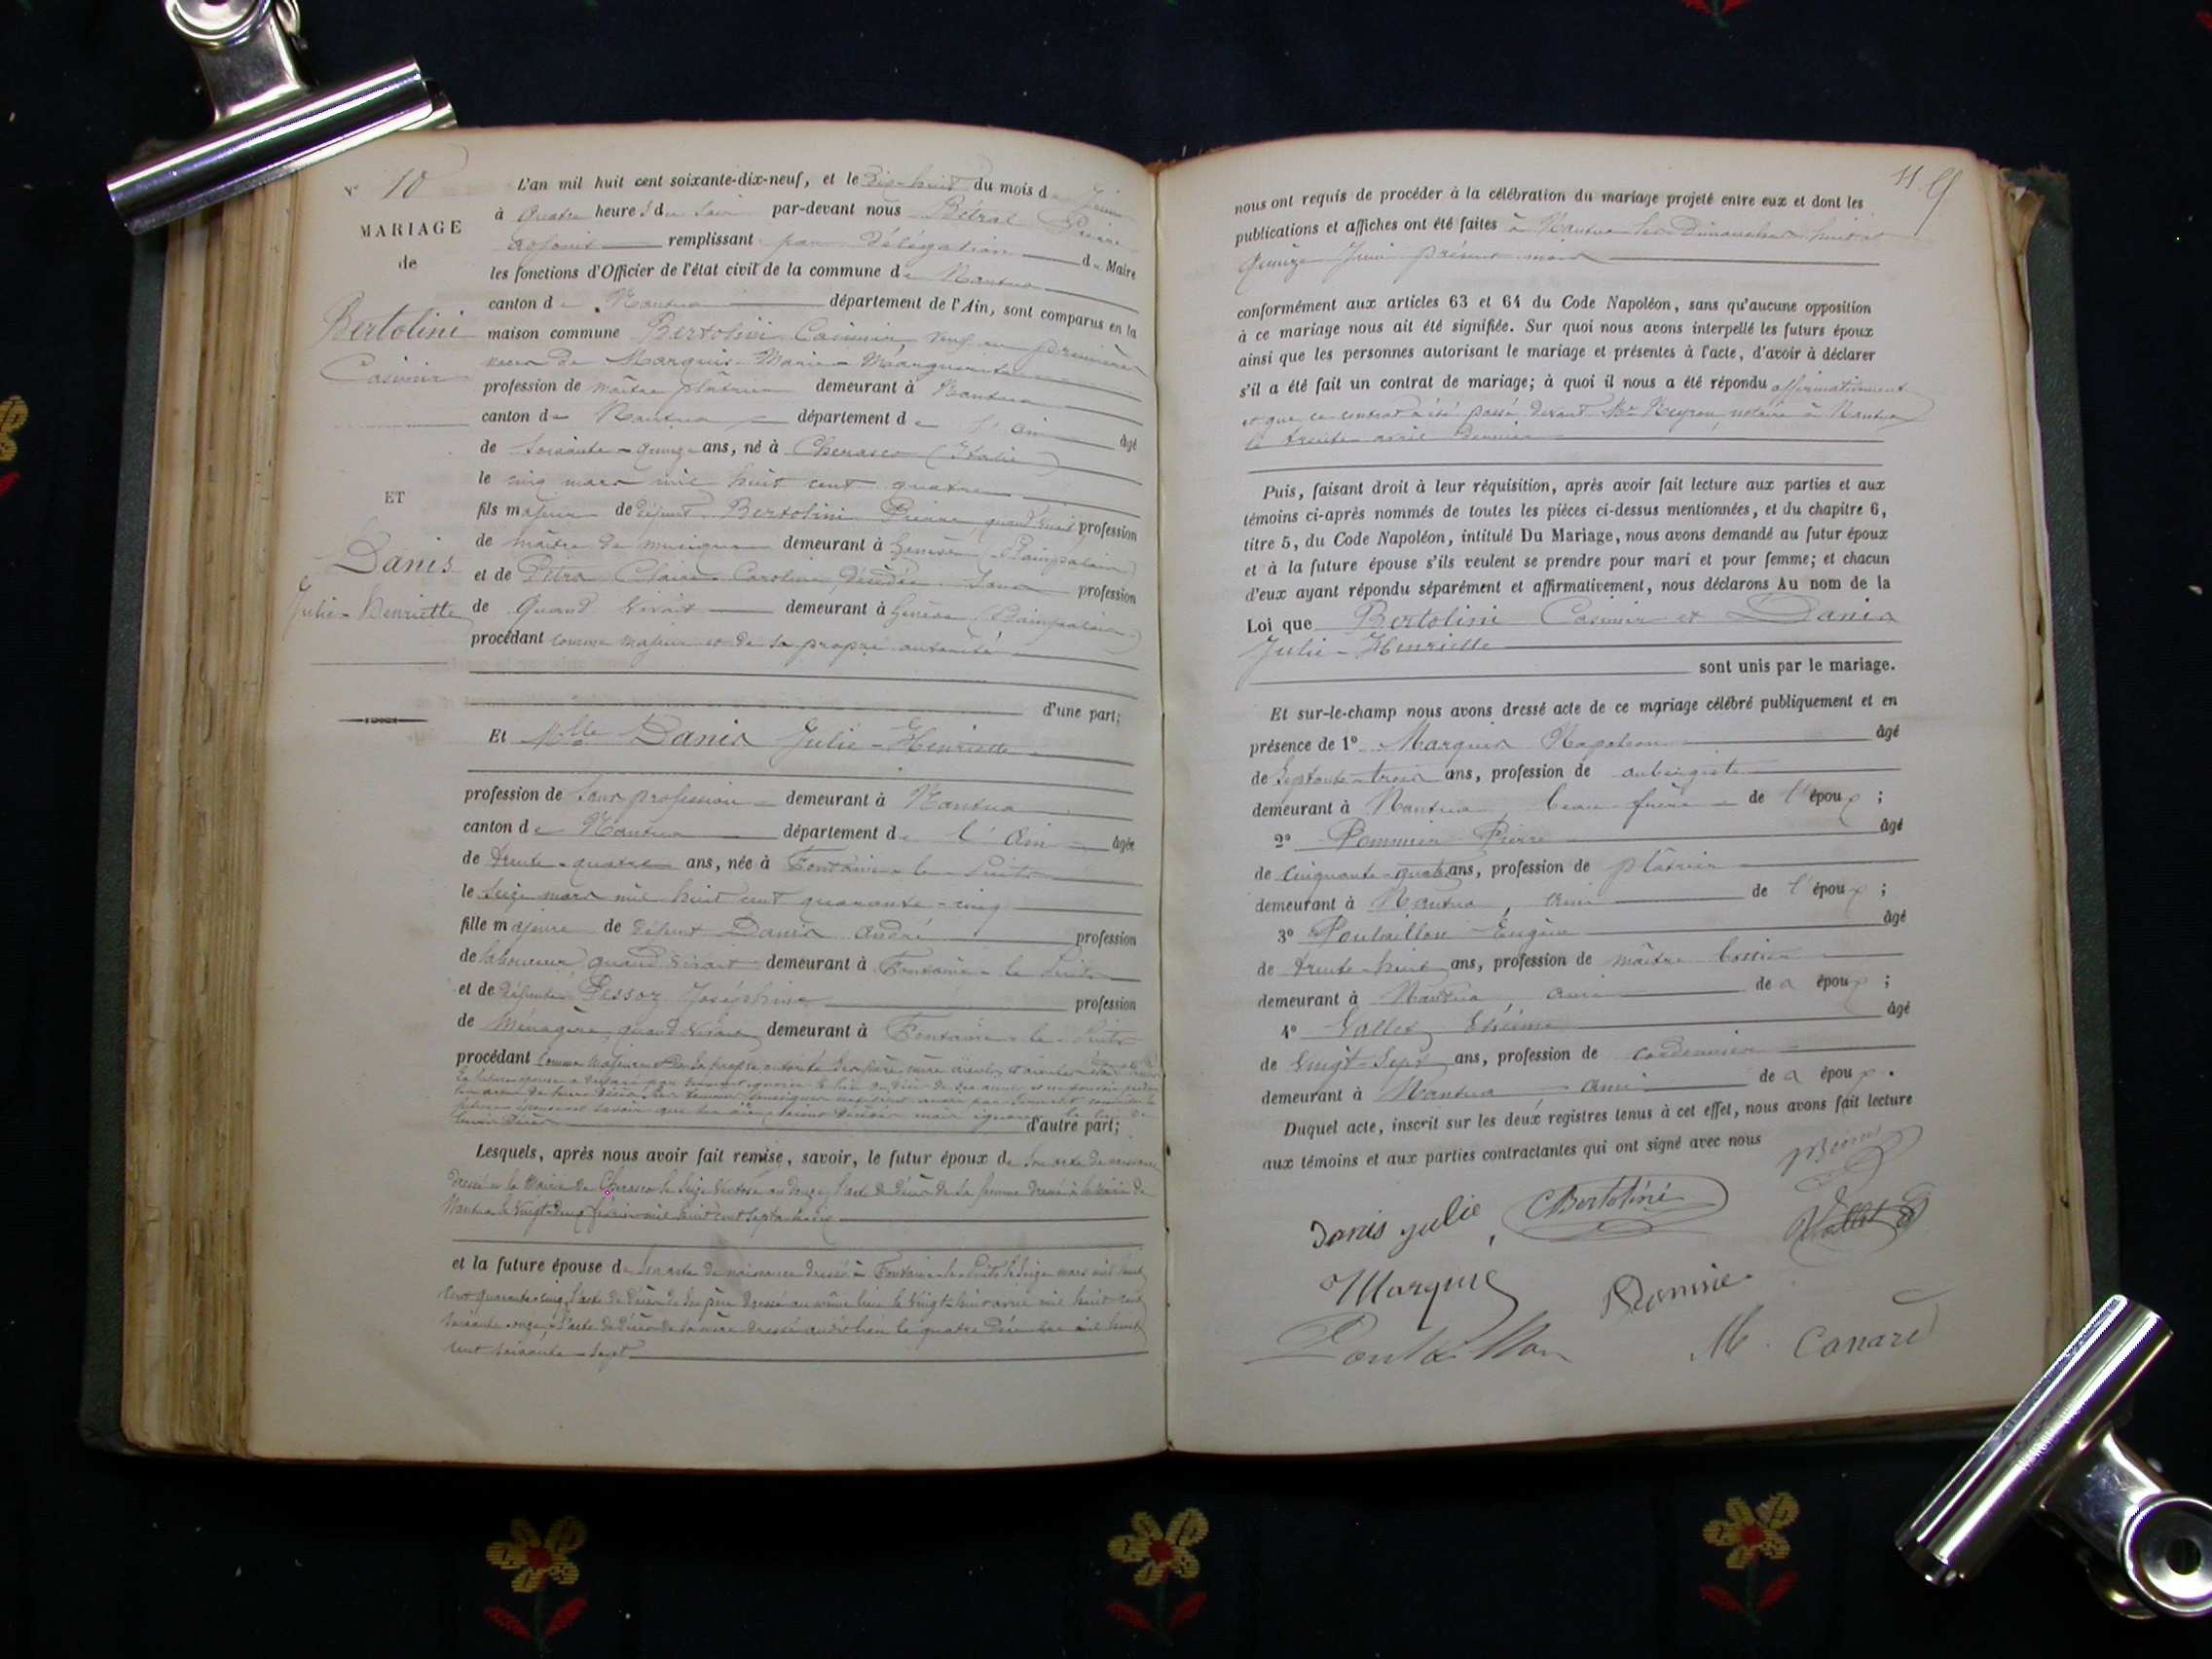 N° 10
MARIAGE
de
Bertolini
Casimir
ET
Danis
Julie-Henriette
L'an mil huit cent soixante-dix-neuf, et le dix-huit du mois de Juin
à quatre heures du soir par-devant nous Pierre
adjoint remplissant par délégation du Maire
les fonctions d'Officier de l'état civil de la commune de Nantua
canton de Nantua département de l'Ain, sont comparus en la
maison commune Bertolini Casimir, veuf en premières
noces de Marquis Marie-Marguerite
profession de maître plâtrier demeurant à Nantua
canton de Nantua département de l'Ain âgé
de soixante-quinze ans, né à Cherasco (Italie)
le cinq mars mil huit cent quatre
fils majeur de défunt Bertolini Pierre, quand vivait profession
de maître de musique demeurant à Genève (Plainpalais)
et de Claire Caroline, décédée sans profession
de quand vivait demeurant à Genève (Plainpalais)
procédant comme majeur et de sa propre autorité
d'une part;
Et Mlle Danis Julie-Henriette
profession de sans profession demeurant à Nantua
canton de Nantua département de l'Ain âgée
de trente-quatre ans, née à Fontaine-le-Puits
le seize mars mil huit cent quarante-cinq
fille majeure de défunt Danis André profession
de laboureur quand vivait demeurant à Fontaine-le-Puits
et de défunte Joséphine profession
de ménagère quand vivait demeurant à Fontaine-le-Puits
procédant comme majeure et de sa propre autorité ses père, mère, aïeuls et aïeules étant
la future épouse a déclaré par serment ignorer le lieu du décès de ses aïeuls
leurs décès d'autre part;
Lesquels, après nous avoir fait remise, savoir, le futur époux de son acte de naissance
dressé à la Mairie de Cherasco le seize ventôse an douze, l'acte de décès de sa femme dressé à la Mairie de
Nantua le vingt-deux février mil huit cent
et la future épouse de son acte de naissance dressé à Fontaine-le-Puits le seize mars mil huit
cent quarante-cinq, l'acte de décès de son père dressé au même lieu le vingt-huit avril mil huit cent
soixante-onze, l'acte de décès de sa mère dressé audit lieu le quatre décembre mil huit
cent soixante-sept
nous ont requis de procéder à la célébration du mariage projeté entre eux et dont les
publications et affiches ont été faites à Nantua les Dimanches huit et
quinze Juin présent mois
conformément aux articles 63 et 64 du Code Napoléon, sans qu'aucune opposition
à ce mariage nous ait été signifiée. Sur quoi nous avons interpellé les futurs époux
ainsi que les personnes autorisant le mariage et présentes à l'acte, d'avoir à déclarer
s'il a été fait un contrat de mariage; à quoi il nous a été répondu affirmativement
et que ce contrat a été passé devant Me Neyron, notaire à Nantua
le trente avril dernier
Puis, faisant droit à leur réquisition, après avoir fait lecture aux parties et aux
témoins ci-après nommés de toutes les pièces ci-dessus mentionnées, et du chapitre 6,
titre 5, du Code Napoléon, intitulé Du Mariage, nous avons demandé au futur époux
et à la future épouse s'ils veulent se prendre pour mari et pour femme; et chacun
d'eux ayant répondu séparément et affirmativement, nous déclarons Au nom de la
Loi que Bertolini Casimir et Danis
Julie-Henriette
sont unis par le mariage.
Et sur-le-champ nous avons dressé acte de ce mariage célébré publiquement et en
présence de 1° Marquis Napoléon âgé
de septante-trois ans, profession de aubergiste
demeurant à Nantua, beau-frère de l'époux ;
2° Pommier Pierre âgé
de cinquante-quatre ans, profession de plâtrier
demeurant à Nantua, ami de l'époux ;
3° Pontaillon Eugène âgé
de trente-huit ans, profession de maître
demeurant à Nantua, ami de époux ;
4° Vallet Etienne âgé
de vingt-sept ans, profession de cordonnier
demeurant à Nantua ami de époux.
Duquel acte, inscrit sur les deux registres tenus à cet effet, nous avons fait lecture
aux témoins et aux parties contractantes qui ont signé avec nous
Danis Julie
C Bertolini
Vallet E
Marquis
M. Canard